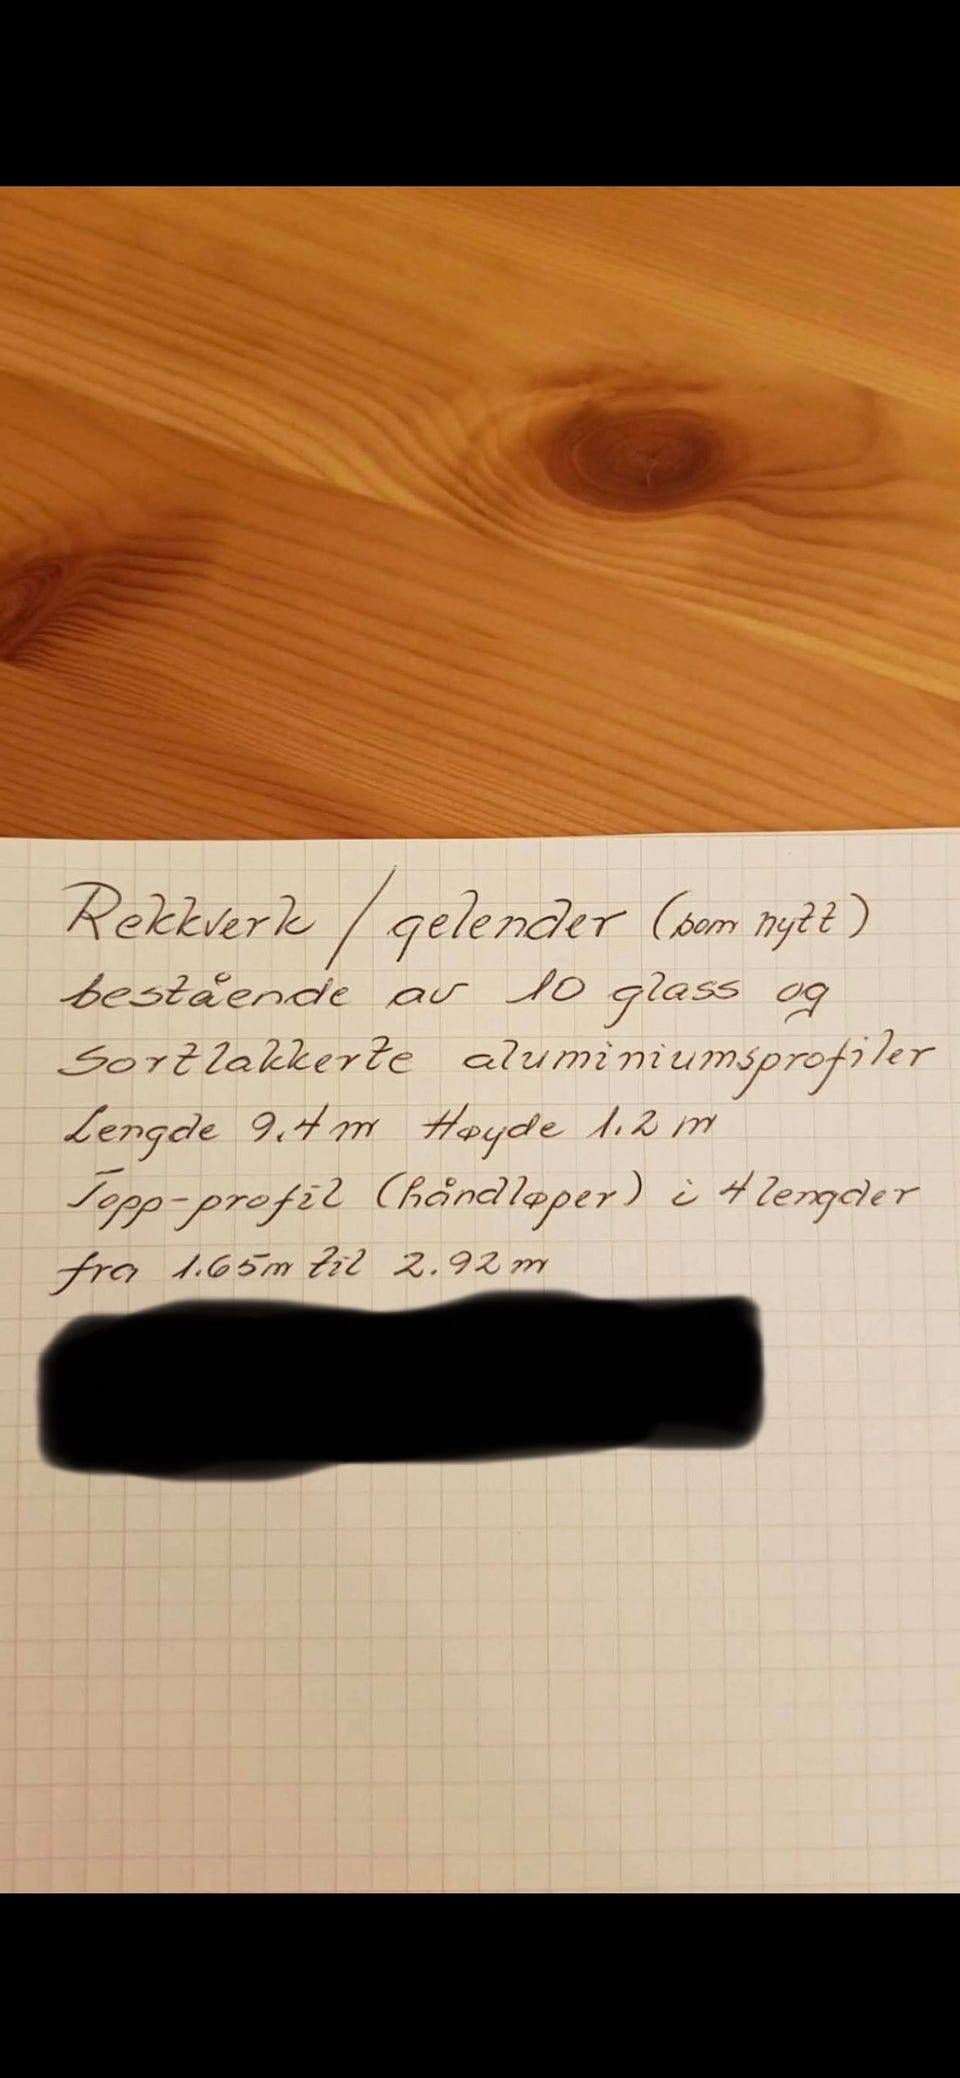 Rekkverk / gelender (som nytt)
bestående av 10 glass og
Sortlakkerte aluminiumsprofiler
Lengde 9.4 m Høyde 1.2 m
Topp-profil (håndløper) i 4 lengder
fra 1.65m til 2.92 m